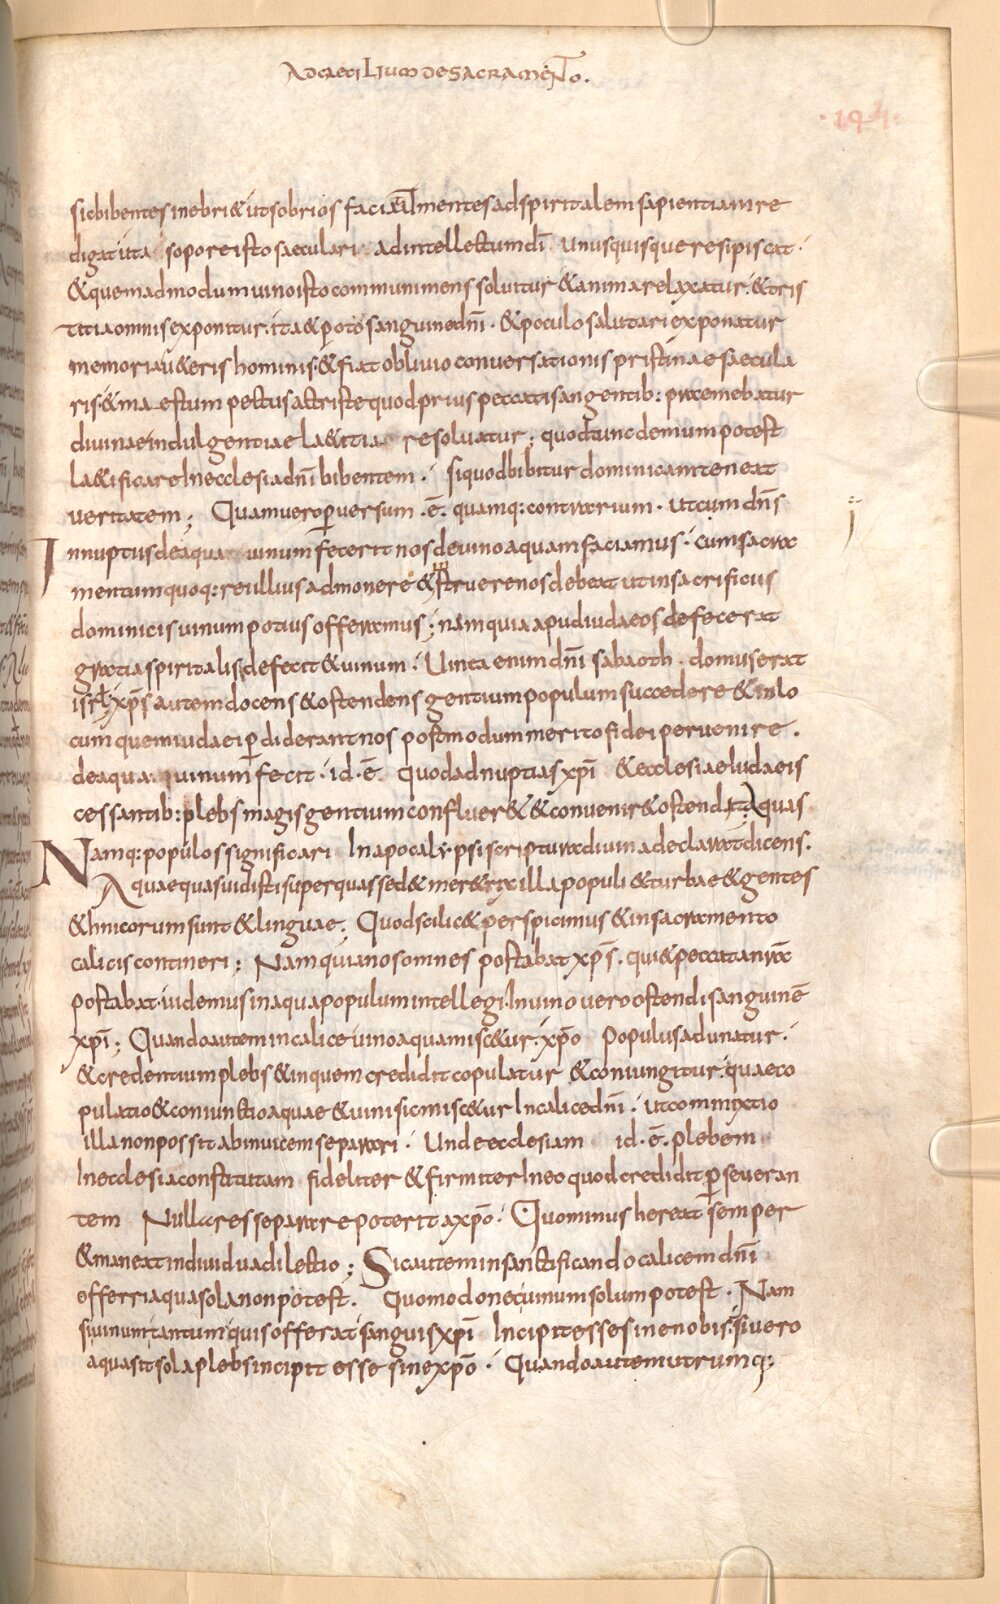 AD CAECILIUM DE SACRAMENTO.
·194·
sic bibentes inebri& ut sobrios faciat. mentes ad spiritalem sapientiam re
digat ut a sopore isto saeculari ad intellectum dī unus quisque resipiscat.
& quemadmodum uino isto communi mens soluitur & anima relaxatur. & tris
titia omnis exponitur. ita & poto sanguine dnī. & poculo salutari exponatur
memoria u&eris hominis. & fiat obliuio conuersationis pristinae saecula
ris. & maestum pectus ac triste quod prius peccatis angentib: praemebatur
diuinae indulgentiae la&itia resoluatur; quod tunc demum potest
la&ificare In ecclesia dnī bibentem. si quod bibitur dominicam teneat
ueritatem; Quam uero ꝑuersum .ē. quamq: contrarium. ut cum dns̄
In nuptiis de aqua uinum fecerit nos de uino aquam faciamus. cum sacra
mentum quoq: rei illius admonere & instruere nos debeat ut in sacrificiis
dominicis uinum potius offeramus; nam quia apud iudaeos defecerat
gratia spiritalis defecit & uinum. Uinea enim dnī sabaoth. domus erat
isrl̄ xps̄ autem docens & ostendens gentium populum succedere & in lo
cum quem iudaei ꝑdiderant nos postmodum merito fidei peruenire.
de aqua uinum fecit. id .ē. quod ad nuptias xpī & ecclesiae Iudaeis
cessantib: plebs magis gentium conflueret & conuenir& ostendit aquas
Namq: populos significari In apocalypsi scriptura diuina declarat dicens.
Aquae quas uidisti super quas sed& mer&rix illa populi & turbae & gentes
&hnicorum sunt & linguae. Quod scilic& perspicimus & in sacramento
calicis contineri; Nam quia nos omnes portabat xps̄. qui & peccata nra
portabat. uidemus in aqua populum intellegi. In uino uero ostendi sanguinē
xpī; Quando autem in calice uino aqua misc&ur. xp̄o populus adunatur.
& credentium plebs & in quem credidit copulatur & coniungitur. quae co
pulatio & coniunctio aquae & uini sic misc&ur In calice dnī. ut commixtio
illa non possit ab inuicem separari. Unde ecclesiam id .ē. plebem
In ecclesia constitutam fideliter & firmiter In eo quod credidit ꝑseueran
tem Nulla res separare poterit a xp̄o. Quo minus hereat semper
& maneat indiuidua dilectio; Sic autem in sanctificando calicem dnī
offerri aqua sola non potest. Quomodo nec uinum solum potest. Nam
si uinum tantum quis offerat sanguis xpī Incipit esse sine nobis. si uero
aqua sit sola plebs incipit esse sine xp̄o. Quando autem utrumq: